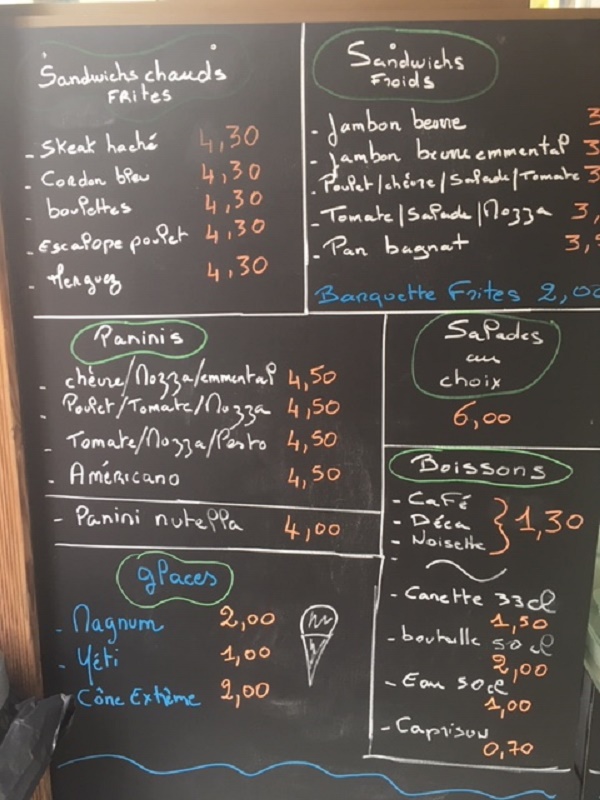 Sandwichs chauds
FRITES
- Skeak haché 4,30
- Cordon bleu 4,30
- boulettes 4,30
- Escalope poulet 4,30
- Merguez 4,30
Sandwichs
Froids
- Jambon beurre 3
- Jambon beurre emmental 3
- Poulet/chèvre/Salade/Tomate 3
- Tomate/Salade/Mozza 3,
- Pan bagnat 3,
Barquette Frites 2,00
Panini's
- chèvre/Mozza/emmental 4,50
- Poulet/Tomate/Mozza 4,50
- Tomate/Mozza/Pesto 4,50
- Américano 4,50
- Panini nutella 4,00
Salades
au
choix
6,00
Boissons
- Café
- Déca } 1,30
- Noisette
- Canette 33cl
1,50
- bouteille 50cl
2,00
- Eau 50cl
1,00
- Caprisun
0,70
glaces
- Magnum 2,00
- Yéti 1,00
- Cône Extrême 2,00